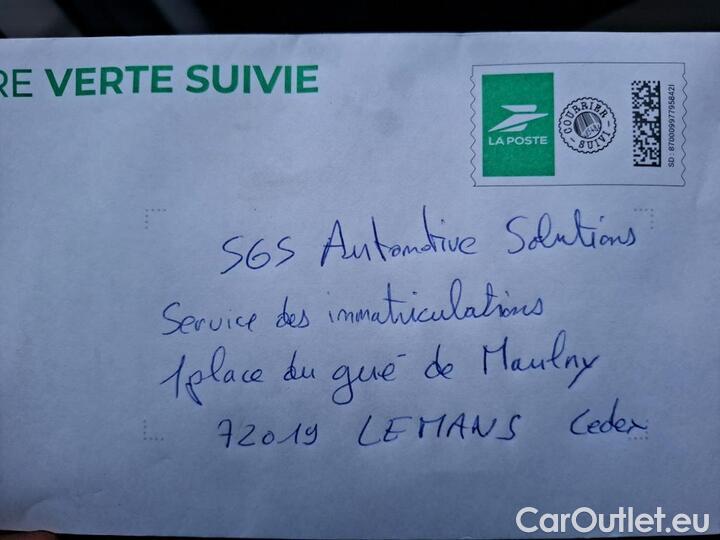 RE VERTE SUIVIE
LA POSTE
COURRIER SUIVI
SD : 87000997795842I
SGS Automotive Solutions
Service des immatriculations
1 place du gué de Maulny
72019 LEMANS Cedex
CarOutlet.eu